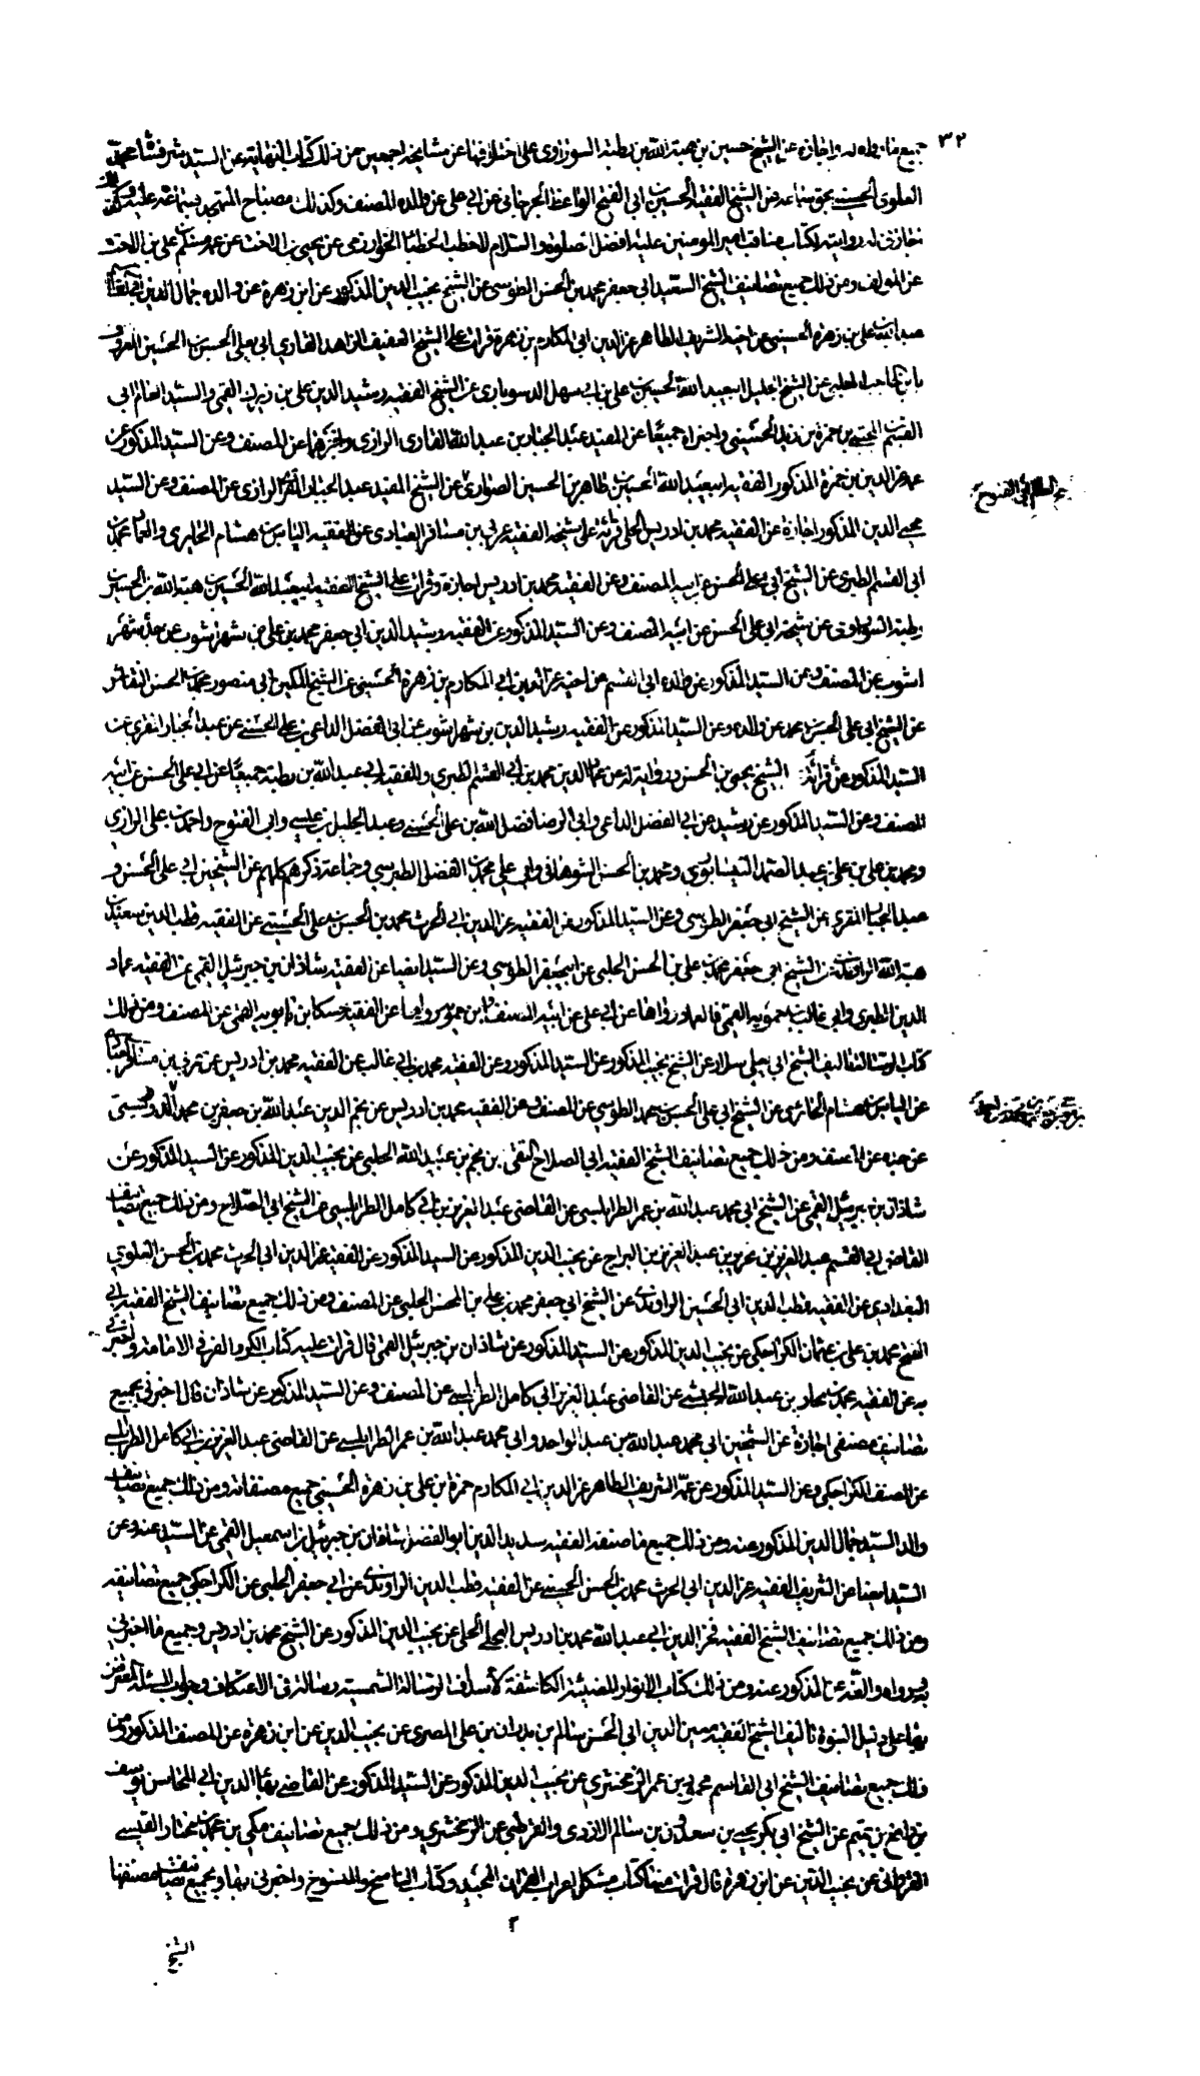 ٣٢
جميع ما رواه له واجازه عن الشيخ حسين بن هبة الله بن رطبة السوراوى على اختلافها عن مشايخه اجمعين من ذلك كتاب النهاية عن السيد شرفشاه محمد
العلوى الحسينى بحق سماعه من الشيخ الفقيه الحسين بن ابى الفتح الواعظ الجرجانى عن ابى على عن والده المصنف وكذلك مصباح المتهجد بسماعه عليه وكذلك
اجازنى له روايته لكتاب مناقب امير المومنين عليه افضل الصلوة والسلام للخطب الخطباء الخوارزمى عن يحيى بن الاخت عن على بن الاخت
عن المولف ومن ذلك جميع تصانيف الشيخ السعيد ابى جعفر محمد بن الحسن الطوسى عن الشيخ نجيب الدين المذكور عن ابن زهرة عن والده جمال الدين ابى القاسم
عبد الله بن على بن زهرة الحسينى عن اخيه الشريف الطاهر عز الدين ابى المكارم بن زهرة قرات على الشيخ العفيف الزاهد القارى ابى على الحسن بن الحسين المعروف
بابن الحاجب الحلبى عن الشيخ الجليل ابى عبد الله الحسين بن على بن ابى سهل عن الشيخ الفقيه رشيد الدين على بن زيرك القمى والسيد العالم ابى
القسم المجتبى بن حمزة بن زيد الحسينى واخبراه جميعا عن المفيد عبد الجبار بن عبد الله القارى الرازى واخبرهما عن المصنف وعن السيد المذكور عن
عمه عز الدين بن حمزة المذكور الفقيه ابى عبد الله الحسين بن طاهر بن الحسين الصوارى عن الشيخ المفيد عبد الجبار المقرى الرازى عن المصنف وعن السيد
محيى الدين المذكور اجازة عن الفقيه محمد بن ادريس الحلى قرئه على شيخه الفقيه عربى بن مسافر العبادى عن الفقيه الياس بن هشام الحايرى والعماد محمد بن
ابى القسم الطبرى عن الشيخ ابى على الحسن عن ابيه المصنف وعن الفقيه محمد بن ادريس اجازة وقرات على الشيخ الفقيه ابى عبد الله الحسين بن هبة الله بن الحسين
رطبة السوراوى عن شيخه ابى على الحسن عن ابيه المصنف وعن السيد المذكور عن الفقيه رشيد الدين ابى جعفر محمد بن على بن شهراشوب عن جده شهر
اشوب عن المصنف وعن السيد المذكور عن والده ابى القسم عن اخيه عز الدين ابى المكارم بن زهرة الحسينى عن الشيخ المكين ابى منصور محمد بن الحسن النقاش
عن الشيخ ابى على الحسن بن محمد عن والده وعن السيد المذكور عن الفقيه رشيد الدين بن شهراشوب عن ابى الفضل الداعى بن على الحسنى عن عبد الجبار المقرى عن
السيد المذكور عن الشيخ يحيى بن الحسن وروايته له عن عماد الدين محمد بن ابى القسم الطبرى والفقيه ابى عبد الله بن رطبة جميعا عن ابى على الحسن عن ابيه
المصنف وعن السيد المذكور عن رشيد عن ابى الفضل الداعى وابى الرضا فضل الله بن على الحسنى وعبد الجليل بن عيسى وابى الفتوح واحمد بن على الرازى
ومحمد بن على بن على بن عبد الصمد النيسابورى ومحمد بن الحسن الشوهانى وابى على محمد بن الفضل الطبرسى وجماعة ذكرهم كلهم عن الشيخين ابى على الحسن و
عبد الجبار المقرى عن الشيخ ابى جعفر الطوسى وعن السيد المذكور عن الفقيه عز الدين ابى الحرث محمد بن الحسن بن على الحسينى عن الفقيه قطب الدين سعيد بن
هبة الله الراوندى عن الشيخ ابى جعفر محمد بن على بن الحسن الحلبى عن ابى جعفر الطوسى وعن السيد ايضا عن الفقيه شاذان بن جبرئيل القمى عن الفقيه عماد
الدين الطبرى وابى غالب بن حمويه القمى قالا رواها عن ابى على عن ابيه المصنف ايضا عن الفقيه حسكا بن بابويه القمى عن المصنف ومن ذلك
كتاب الرسالة تاليف الشيخ ابى يعلى سلار عن الشيخ نجيب المذكور عن السيد المذكور وعن الفقيه محمد بن ابى غالب عن الفقيه محمد بن ادريس عن عربى بن مسافر العبادى
عن الياس بن هشام الحائرى عن الشيخ ابى على الحسن بن محمد الطوسى عن المصنف وعن الفقيه محمد بن ادريس عن نجم الدين عبد الله بن جعفر بن محمد الدوريستى
عن جده عن المصنف ومن ذلك جميع تصانيف الشيخ الفقيه ابى الصلاح التقى بن نجم بن عبيد الله الحلبى عن نجيب الدين المذكور عن السيد المذكور عن
شاذان بن جبرئيل القمى عن الشيخ ابى محمد عبد الله بن عمر الطرابلسى عن القاضى عبد العزيز بن ابى كامل الطرابلسى عن الشيخ ابى الصلاح ومن ذلك جميع تصانيف
القاضى ابى القسم عبد العزيز بن نحرير بن عبد العزيز بن البراج عن نجيب الدين المذكور عن السيد المذكور عن الفقيه عز الدين ابى الحرث محمد بن الحسن العلوى
البغدادى عن الفقيه قطب الدين ابى الحسين الراوندى عن الشيخ ابى جعفر محمد بن على بن المحسن الحلبى عن المصنف ومن ذلك جميع تصانيف الشيخ الفقيه ابى
الفتح محمد بن على بن عثمان الكراجكى عن نجيب الدين المذكور عن السيد المذكور عن شاذان بن جبرئيل القمى قال قرات عليه كتاب الكر والفر فى الامامة واخبرنى
به عن الفقيه محمد بن عبد الله عن القاضى عبد العزيز ابى كامل الطرابلسى عن المصنف وعن السيد المذكور عن شاذان قال اخبرنى بجميع
تصانيف مصنفى اجازة عن الشيخين ابى محمد عبد الله بن عبد الواحد وابى محمد عبد الله بن عمر الطرابلسى عن القاضى عبد العزيز بن ابى كامل الطرابلسى
عن المصنف الكراجكى وعن السيد المذكور عن عمه الشريف الطاهر عز الدين ابى المكارم حمزة بن على بن زهرة الحسينى جميع مصنفاته ومن ذلك جميع تصانيف
والد السيد جمال الدين المذكور عنه ومن ذلك جميع ما صنفه الفقيه سديد الدين ابو الفضل شاذان بن جبرئيل بن اسمعيل القمى عن السيد عنه وعن
السيد ايضا عن الشريف الفقيه عز الدين ابى الحرث محمد بن الحسن الحسينى عن الفقيه قطب الدين الراوندى عن ابى جعفر الحلبى عن الكراجكى جميع تصانيفه
ومن ذلك جميع تصانيف الشيخ الفقيه فخر الدين ابى عبد الله محمد بن ادريس العجلى الحلى عن نجيب الدين المذكور عن الشيخ محمد بن ادريس وجميع ما اخبرنى
به ورواه والفه عن المذكور عنه ومن ذلك كتاب الانوار المضيئة الكاشفة لاسداف الرسالة الشمسية ورسالة فى الاعتكاف وجواب المسئلة المعترض
بها على دليل النبوة تاليف الشيخ الفقيه معين الدين ابى الحسن سالم بن بدران بن على المصرى عن نجيب الدين عن ابن زهرة عن المصنف المذكور ومن
ذلك جميع تصانيف الشيخ ابى القاسم محمود بن عمر الزمخشرى عن نجيب الدين المذكور عن السيد المذكور عن القاضى بهاء الدين ابى المحاسن يوسف
بن رافع بن تميم عن الشيخ ابى بكر يحيى بن سعدون بن سالم الازدى والقرطبى عن الزمخشرى ومن ذلك جميع تصانيف مكى بن محمد بن مختار القيسى
القيروانى عن نجيب الدين عن ابن زهرة قال قرات منها كتاب مشكل اعراب القران المجيد وكتاب الناسخ والمنسوخ واخبرنى بها وبجميع تصانيف مصنفها
٢
الشيخ